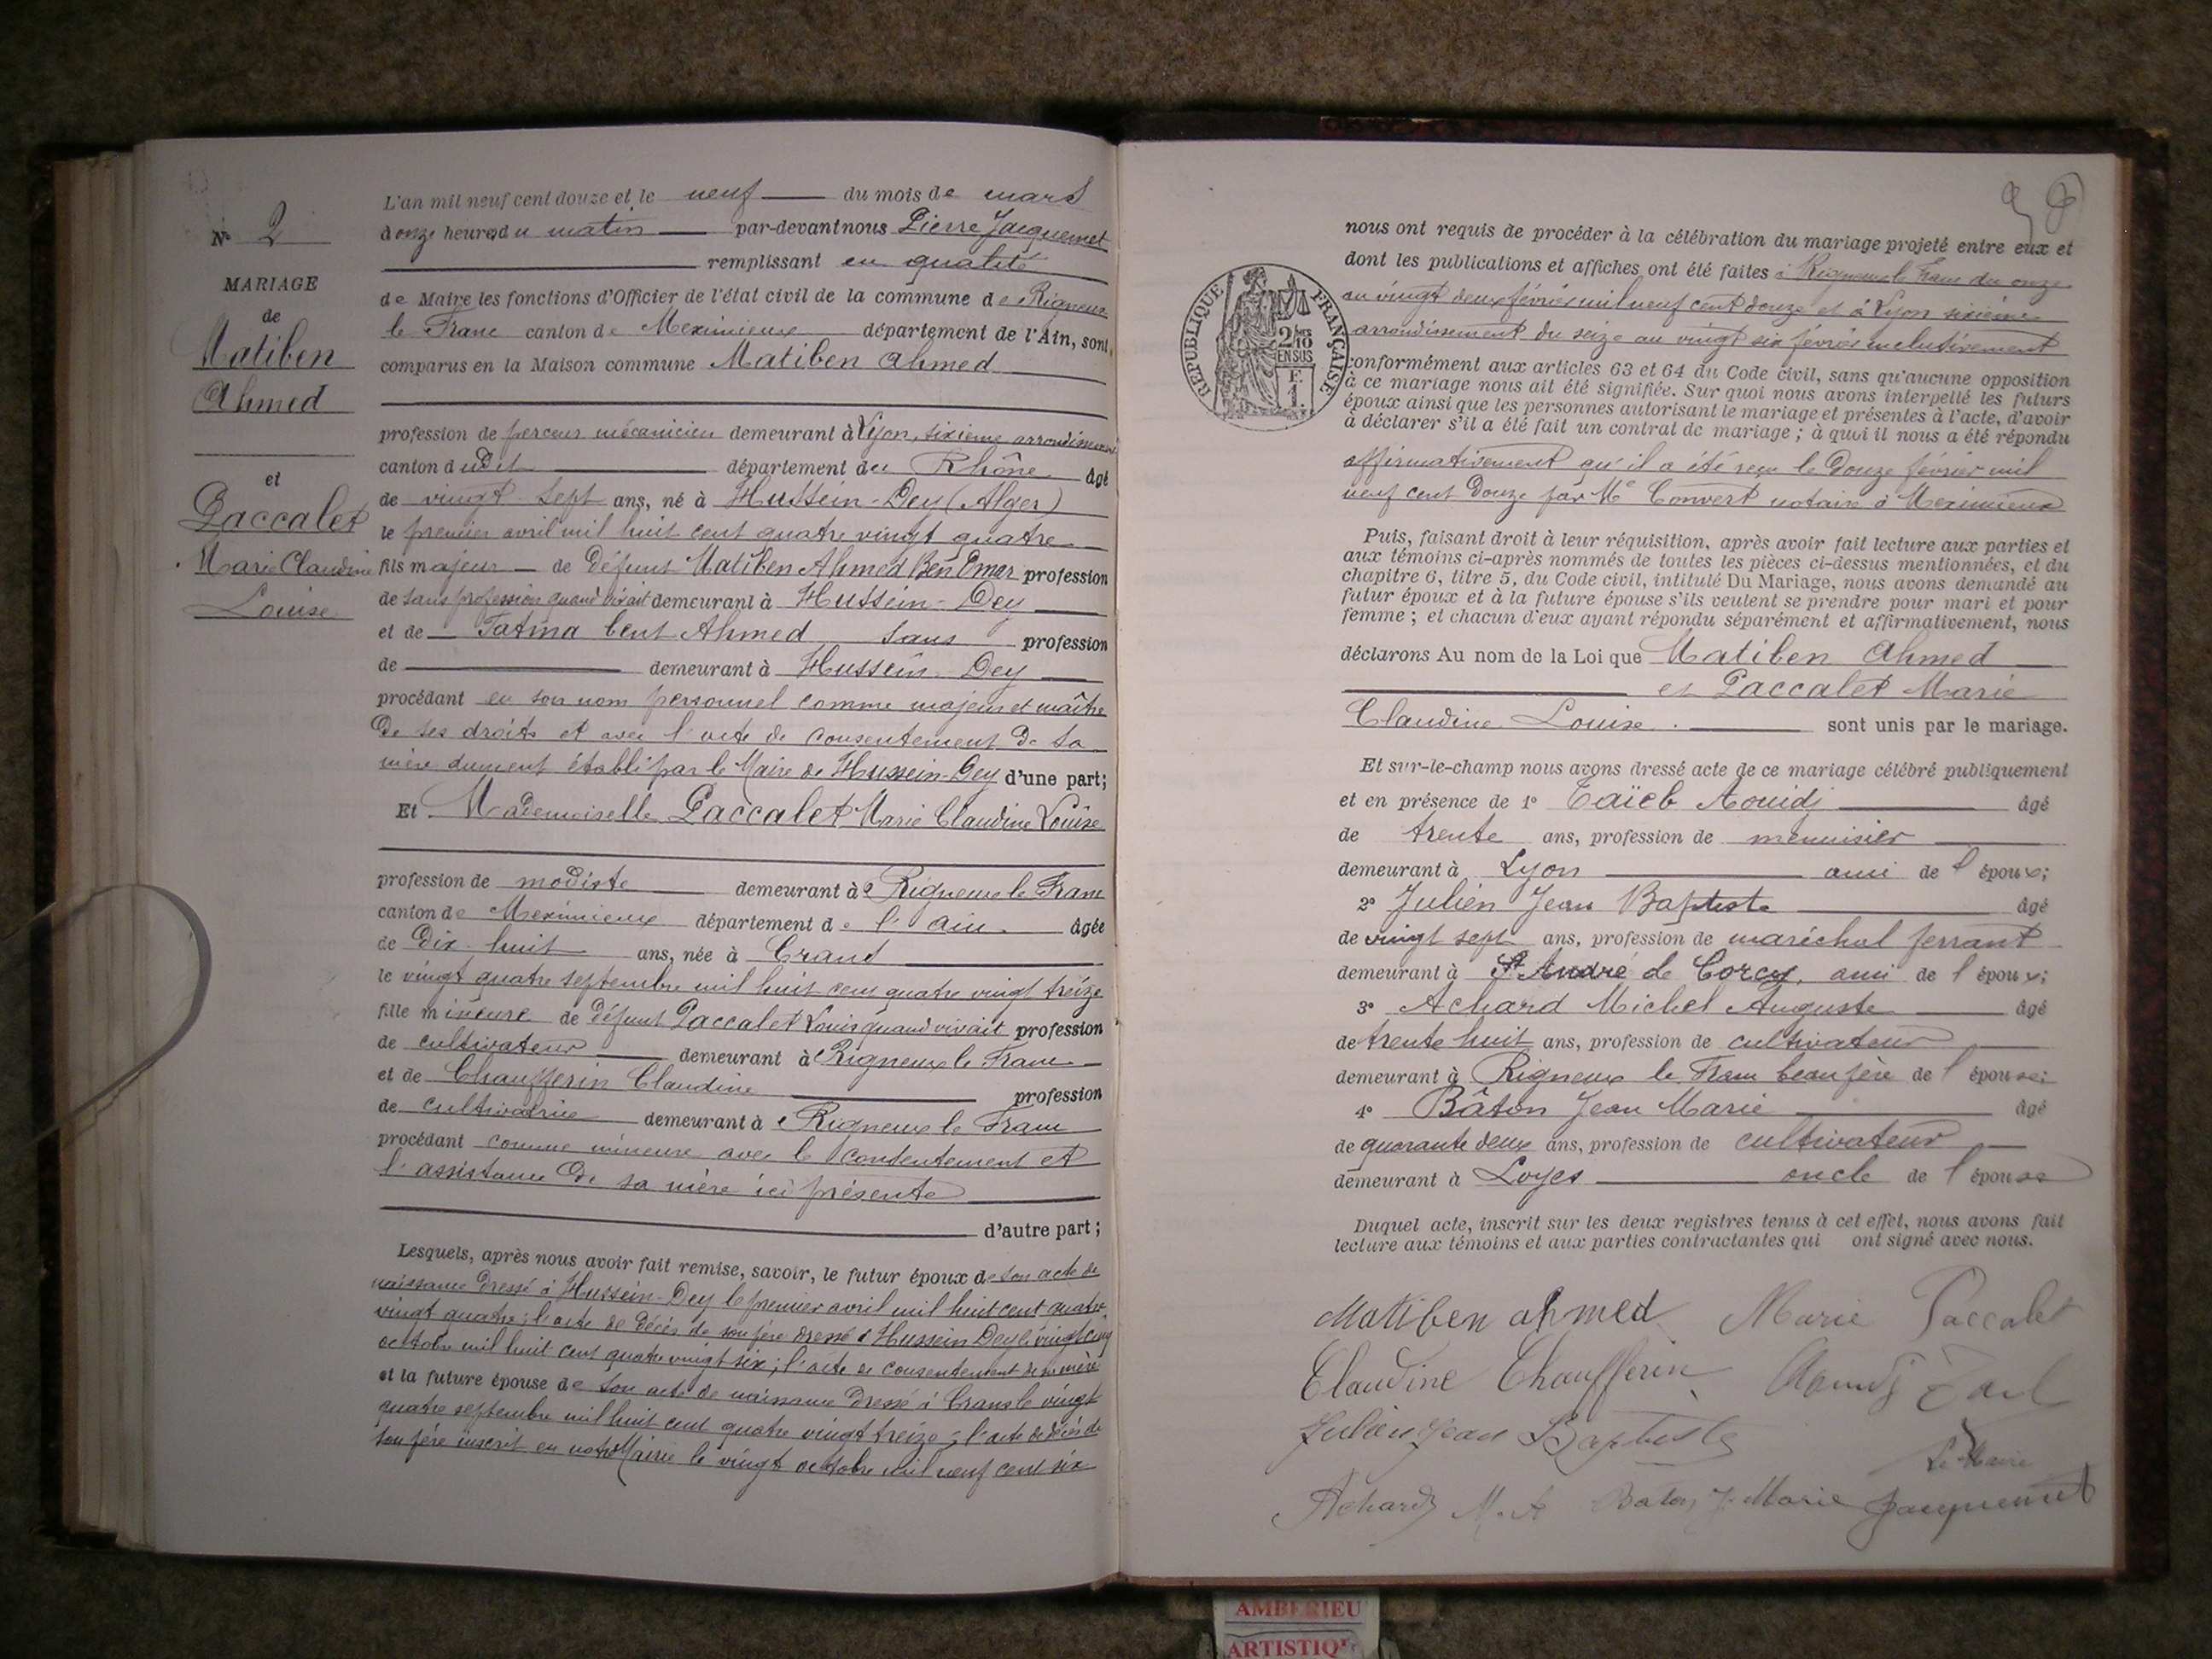 N° 2
MARIAGE
de
Matiben
Ahmed
et
Paccalet
Marie Claudine
Louise
L'an mil neuf cent douze et le neuf du mois de mars
à onze heures du matin par-devant nous Pierre Jacquemet
remplissant en qualité
de Maire les fonctions d'Officier de l'état civil de la commune de Rigneux
le Franc canton de Meximieux département de l'Ain, sont
comparus en la Maison commune Matiben Ahmed
profession de perceur mécanicien demeurant à Lyon, sixième arrondissement
canton dudit département du Rhône âgé
de vingt sept ans, né à Hussein-Dey (Alger)
le premier avril mil huit cent quatre vingt quatre
fils majeur de défunt Matiben Ahmed Ben Omar profession
de sans profession quand vivait demeurant à Hussein-Dey
et de Fatma bent Ahmed sans profession
de demeurant à Hussein Dey
procédant en son nom personnel comme majeur et maître
de ses droits et avec l'acte de consentement de sa
mère dument établi par le Maire de Hussein-Dey d'une part;
Et Mademoiselle Paccalet Marie Claudine Louise
profession de modiste demeurant à Rigneux le Franc
canton de Meximieux département de l'Ain âgée
de dix huit ans, née à Crans
le vingt quatre septembre mil huit cent quatre vingt treize
fille mineure de défunt Paccalet Louis quand vivait profession
de cultivateur demeurant à Rigneux le Franc
et de Chaufferin Claudine profession
de cultivatrice demeurant à Rigneux le Franc
procédant comme mineure avec le consentement et
l'assistance de sa mère ici présente
d'autre part;
Lesquels, après nous avoir fait remise, savoir, le futur époux de son acte de
naissance dressé à Hussein-Dey le premier avril mil huit cent quatre
vingt quatre; l'acte de décès de son père dressé à Hussein Dey le vingt cinq
octobre mil huit cent quatre vingt six; l'acte de consentement de sa mère
et la future épouse de son acte de naissance dressé à Crans le vingt
quatre septembre mil huit cent quatre vingt treize; l'acte de décès de
son père inscrit en notre Mairie le vingt octobre mil neuf cent six
nous ont requis de procéder à la célébration du mariage projeté entre eux et
dont les publications et affiches ont été faites à Rigneux le Franc du onze
au vingt deux février mil neuf cent douze et à Lyon sixième
arrondissement du seize au vingt six février inclusivement
RÉPUBLIQUE FRANÇAISE
2/10
EN SUS
F.
1.
conformément aux articles 63 et 64 du Code civil, sans qu'aucune opposition
à ce mariage nous ait été signifiée. Sur quoi nous avons interpellé les futurs
époux ainsi que les personnes autorisant le mariage et présentes à l'acte, d'avoir
à déclarer s'il a été fait un contrat de mariage; à quoi il nous a été répondu
affirmativement qu'il a été reçu le douze février mil
neuf cent douze par Me Convert notaire à Meximieux
Puis, faisant droit à leur réquisition, après avoir fait lecture aux parties et
aux témoins ci-après nommés de toutes les pièces ci-dessus mentionnées, et du
chapitre 6, titre 5, du Code civil, intitulé Du Mariage, nous avons demandé au
futur époux et à la future épouse s'ils veulent se prendre pour mari et pour
femme; et chacun d'eux ayant répondu séparément et affirmativement, nous
déclarons Au nom de la Loi que Matiben Ahmed
et Paccalet Marie
Claudine Louise sont unis par le mariage.
Et sur-le-champ nous avons dressé acte de ce mariage célébré publiquement
et en présence de 1° Taïeb Aouidj âgé
de trente ans, profession de menuisier
demeurant à Lyon ami de l'époux;
2° Julien Jean Baptiste âgé
de vingt sept ans, profession de maréchal ferrant
demeurant à St André de Corcy, ami de l'époux;
3° Achard Michel Auguste âgé
de trente huit ans, profession de cultivateur
demeurant à Rigneux le Franc beau père de l'épouse;
4° Bâton Jean Marie âgé
de quarante deux ans, profession de cultivateur
demeurant à Loyes oncle de l'épouse
Duquel acte, inscrit sur les deux registres tenus à cet effet, nous avons fait
lecture aux témoins et aux parties contractantes qui ont signé avec nous.
Matiben ahmed Marie Paccalet
Claudine Chaufferin
Julien Jean Baptiste
Le Maire
Achard M. A Baton J. Marie Jacquemet
AMBERIEU
ARTISTIQUE